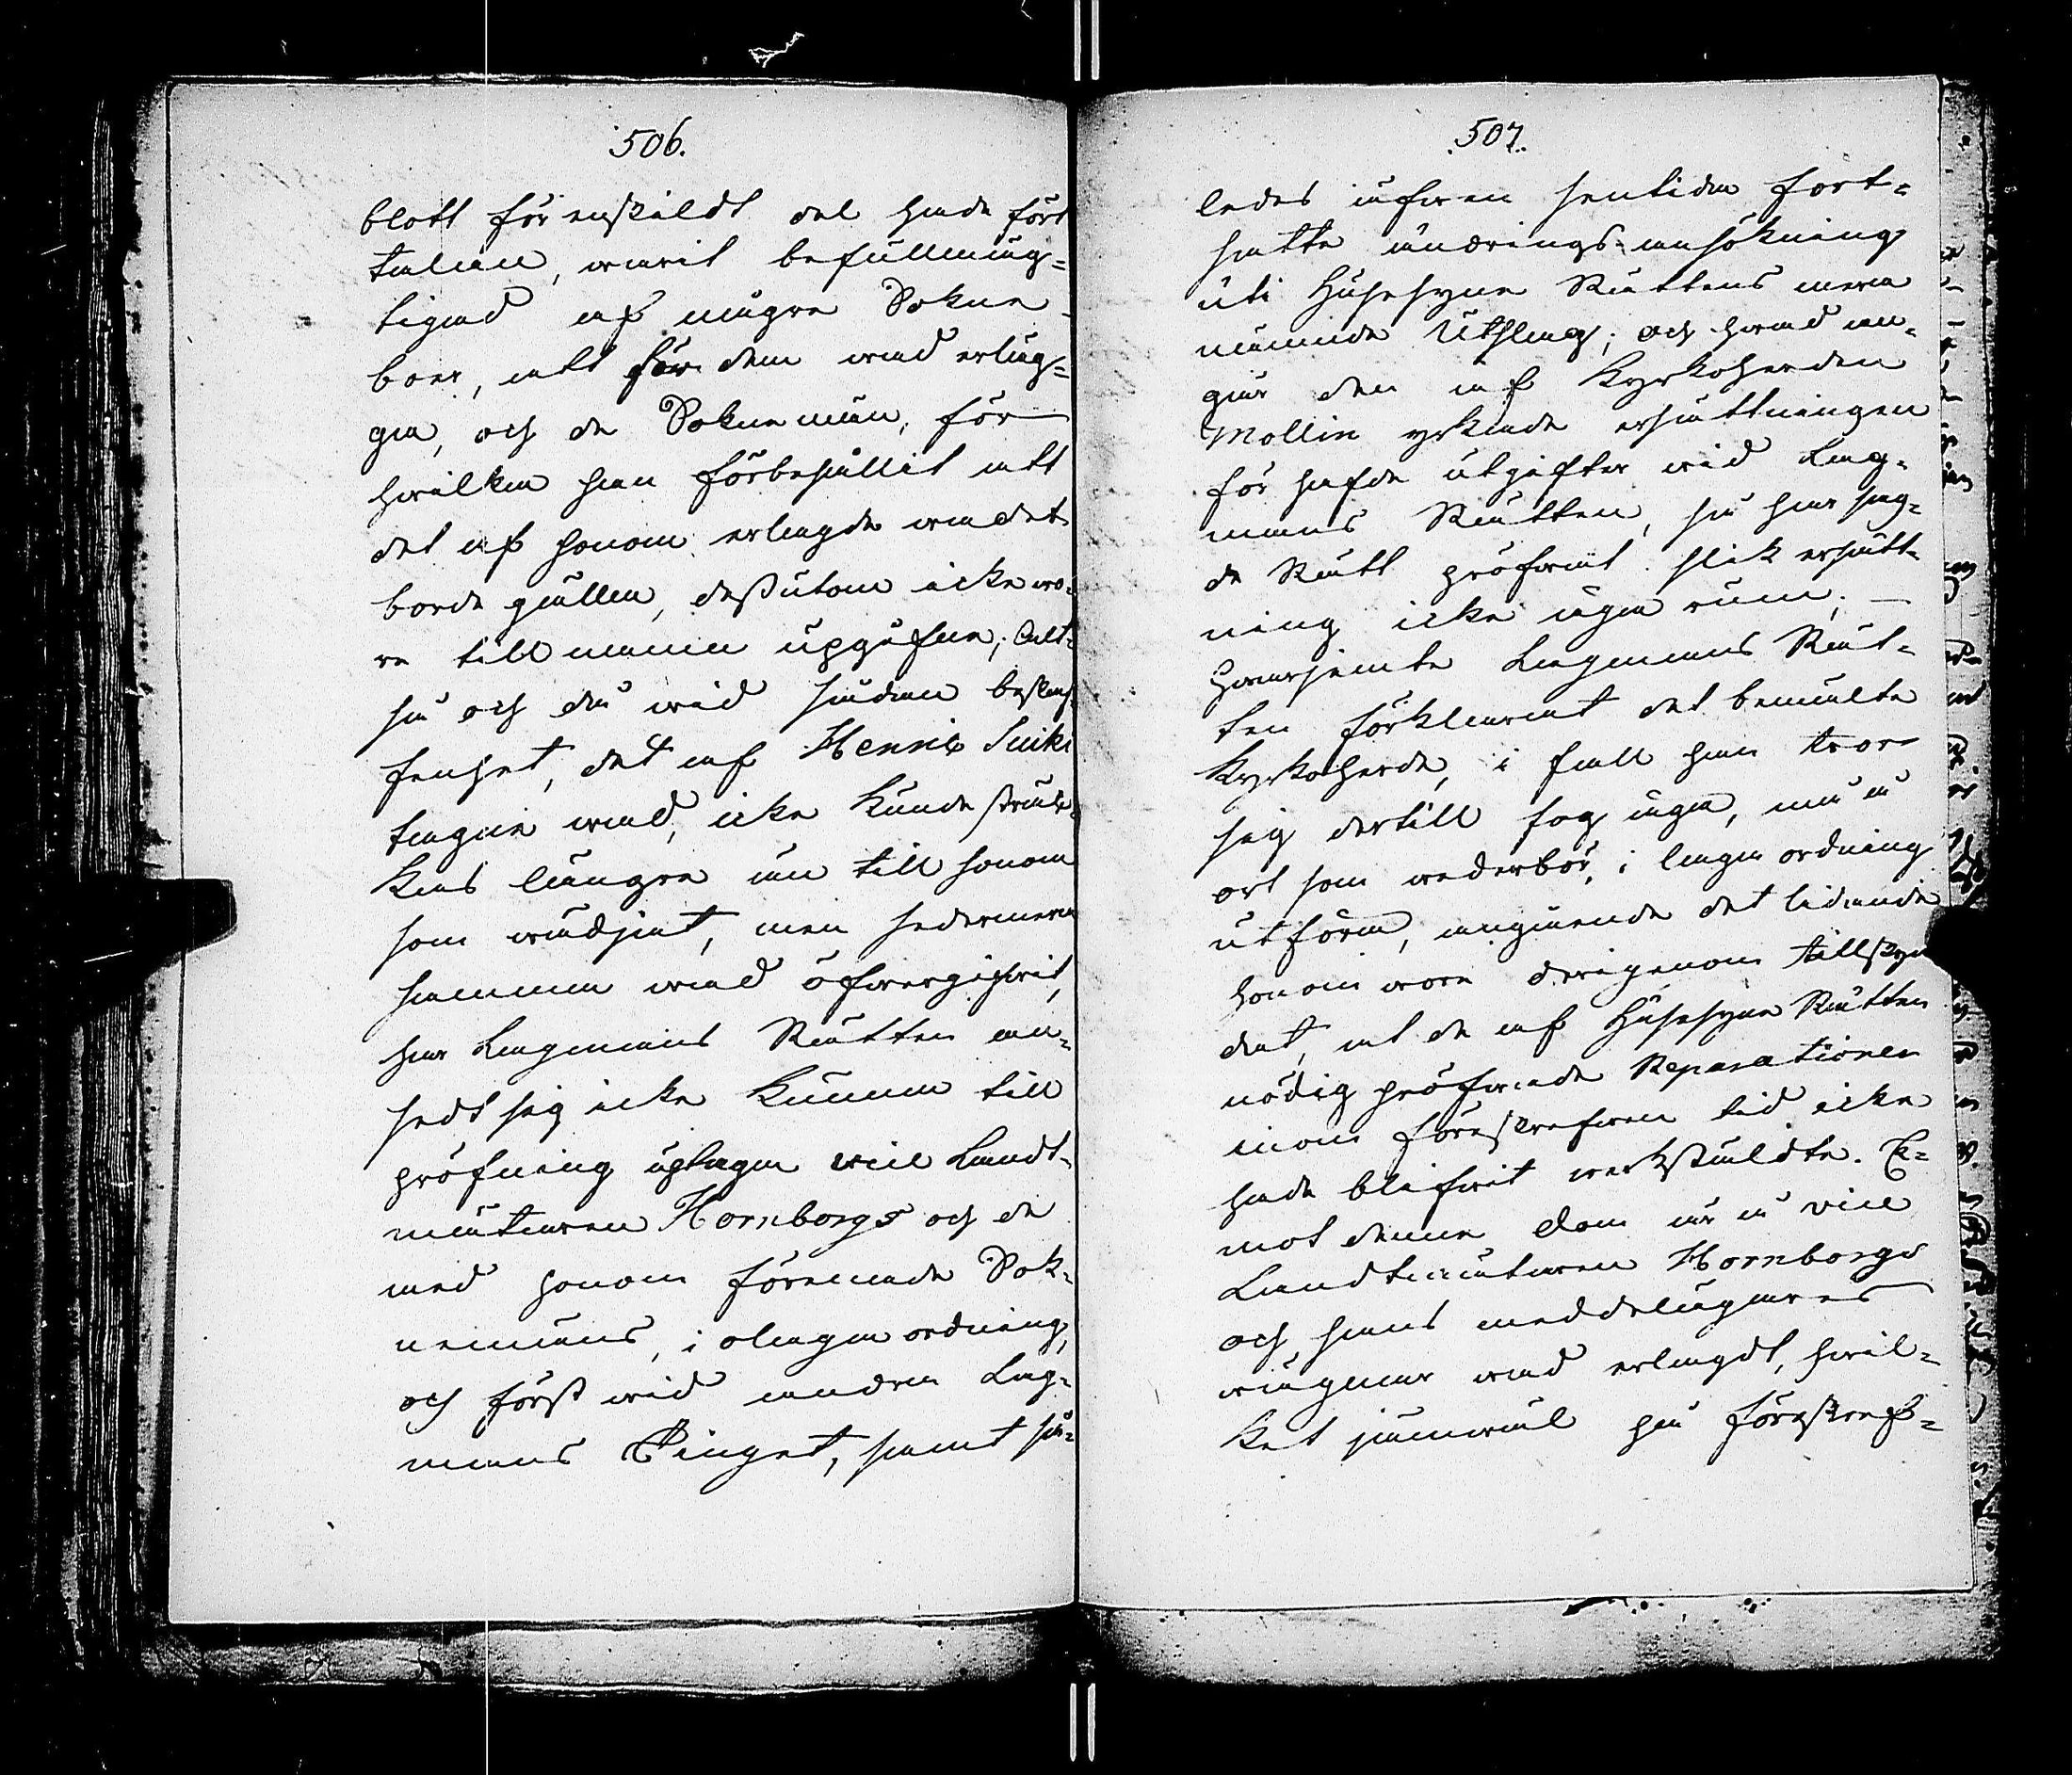 506.
blott för enskildt del hade fört
talan, warit befullmäg=
tigad af någre Sokne
boer, att för dem wad erläg=
ga, och de Soknemän, för
hwilken han förbehållit att
det af honom erlagde wadet
borde gälla, dessutom icke wo=
re till namn upgifne; Alt=
så och då wid sådan beskaf=
fenhet, det af Henric Suiki
tagne wad, icke kunde sträc=
kas längre än till honom
som wädjat, men sedermera
samma wad öfwergifwit,
har Lagmans Rätten an=
sedt sig icke kunna till
pröfning uptaga vice Landt=
mätaren Hornborgs och de
med honom förenade Sok=
nemäns, i olaga ordning,
och först wid andra Lag=
mans Tinget, samt så=
507.
ledes äfwen sentida fort=
satte ändrings-ansökning
uti Husesyne Rättens mera
nämnde Utslag; och hwad an=
går den af Kyrkoherden
Mollin yrkade ersättningen
för hafde utgifter wid Lag=
mans Rätten, så har sag=
de Rätt pröfwat slik ersätt=
ning icke äga rum;
hwarjemte Lagmans Rät=
ten förklarat det bemälte
Kyrkoherde, i fall han tror
sig dertill fog äga, må å
ort som wederbör, i laga ordning
utföra, angående det lidande
honom wore derigenom tillskyn
dat, at de af Husesyne Rätten
nödig pröfwade Reparationer
inom föreskrefwen tid icke
hade blifwit werkstäldte. E=
mot denna dom är å vice
Landtmätaren Hornborgs
och hans meddelägares
wägnar wad erlagdt, hwil=
ket jämwäl på föreskref=